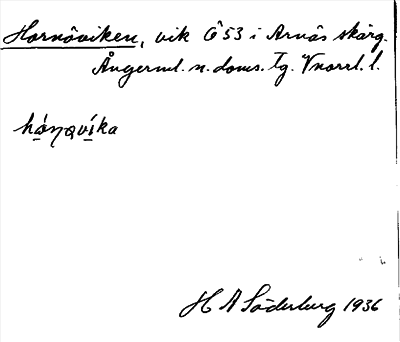 Hornöviken, vik Ö 53 i Arnäs skärg.
Ångerml. n. doms. Tg. Vnorrl. l.
hóṇαvíka
H A Söderberg 1936